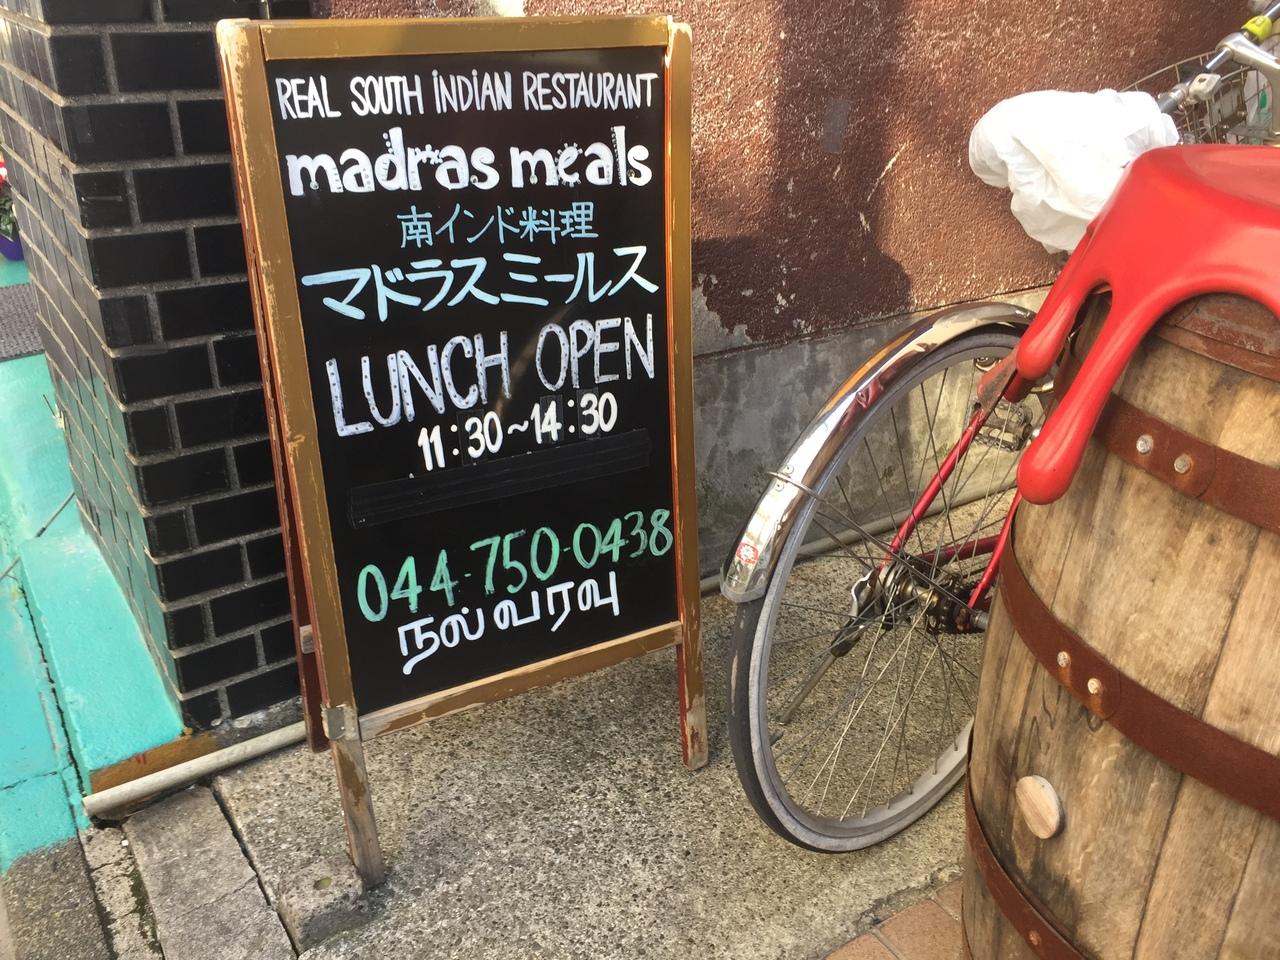 REAL SOUTH INDIAN RESTAURANT
madras meals
南インド料理
マドラスミールス
LUNCH OPEN
11:30~14:30
044-750-0438
நல் வரவு